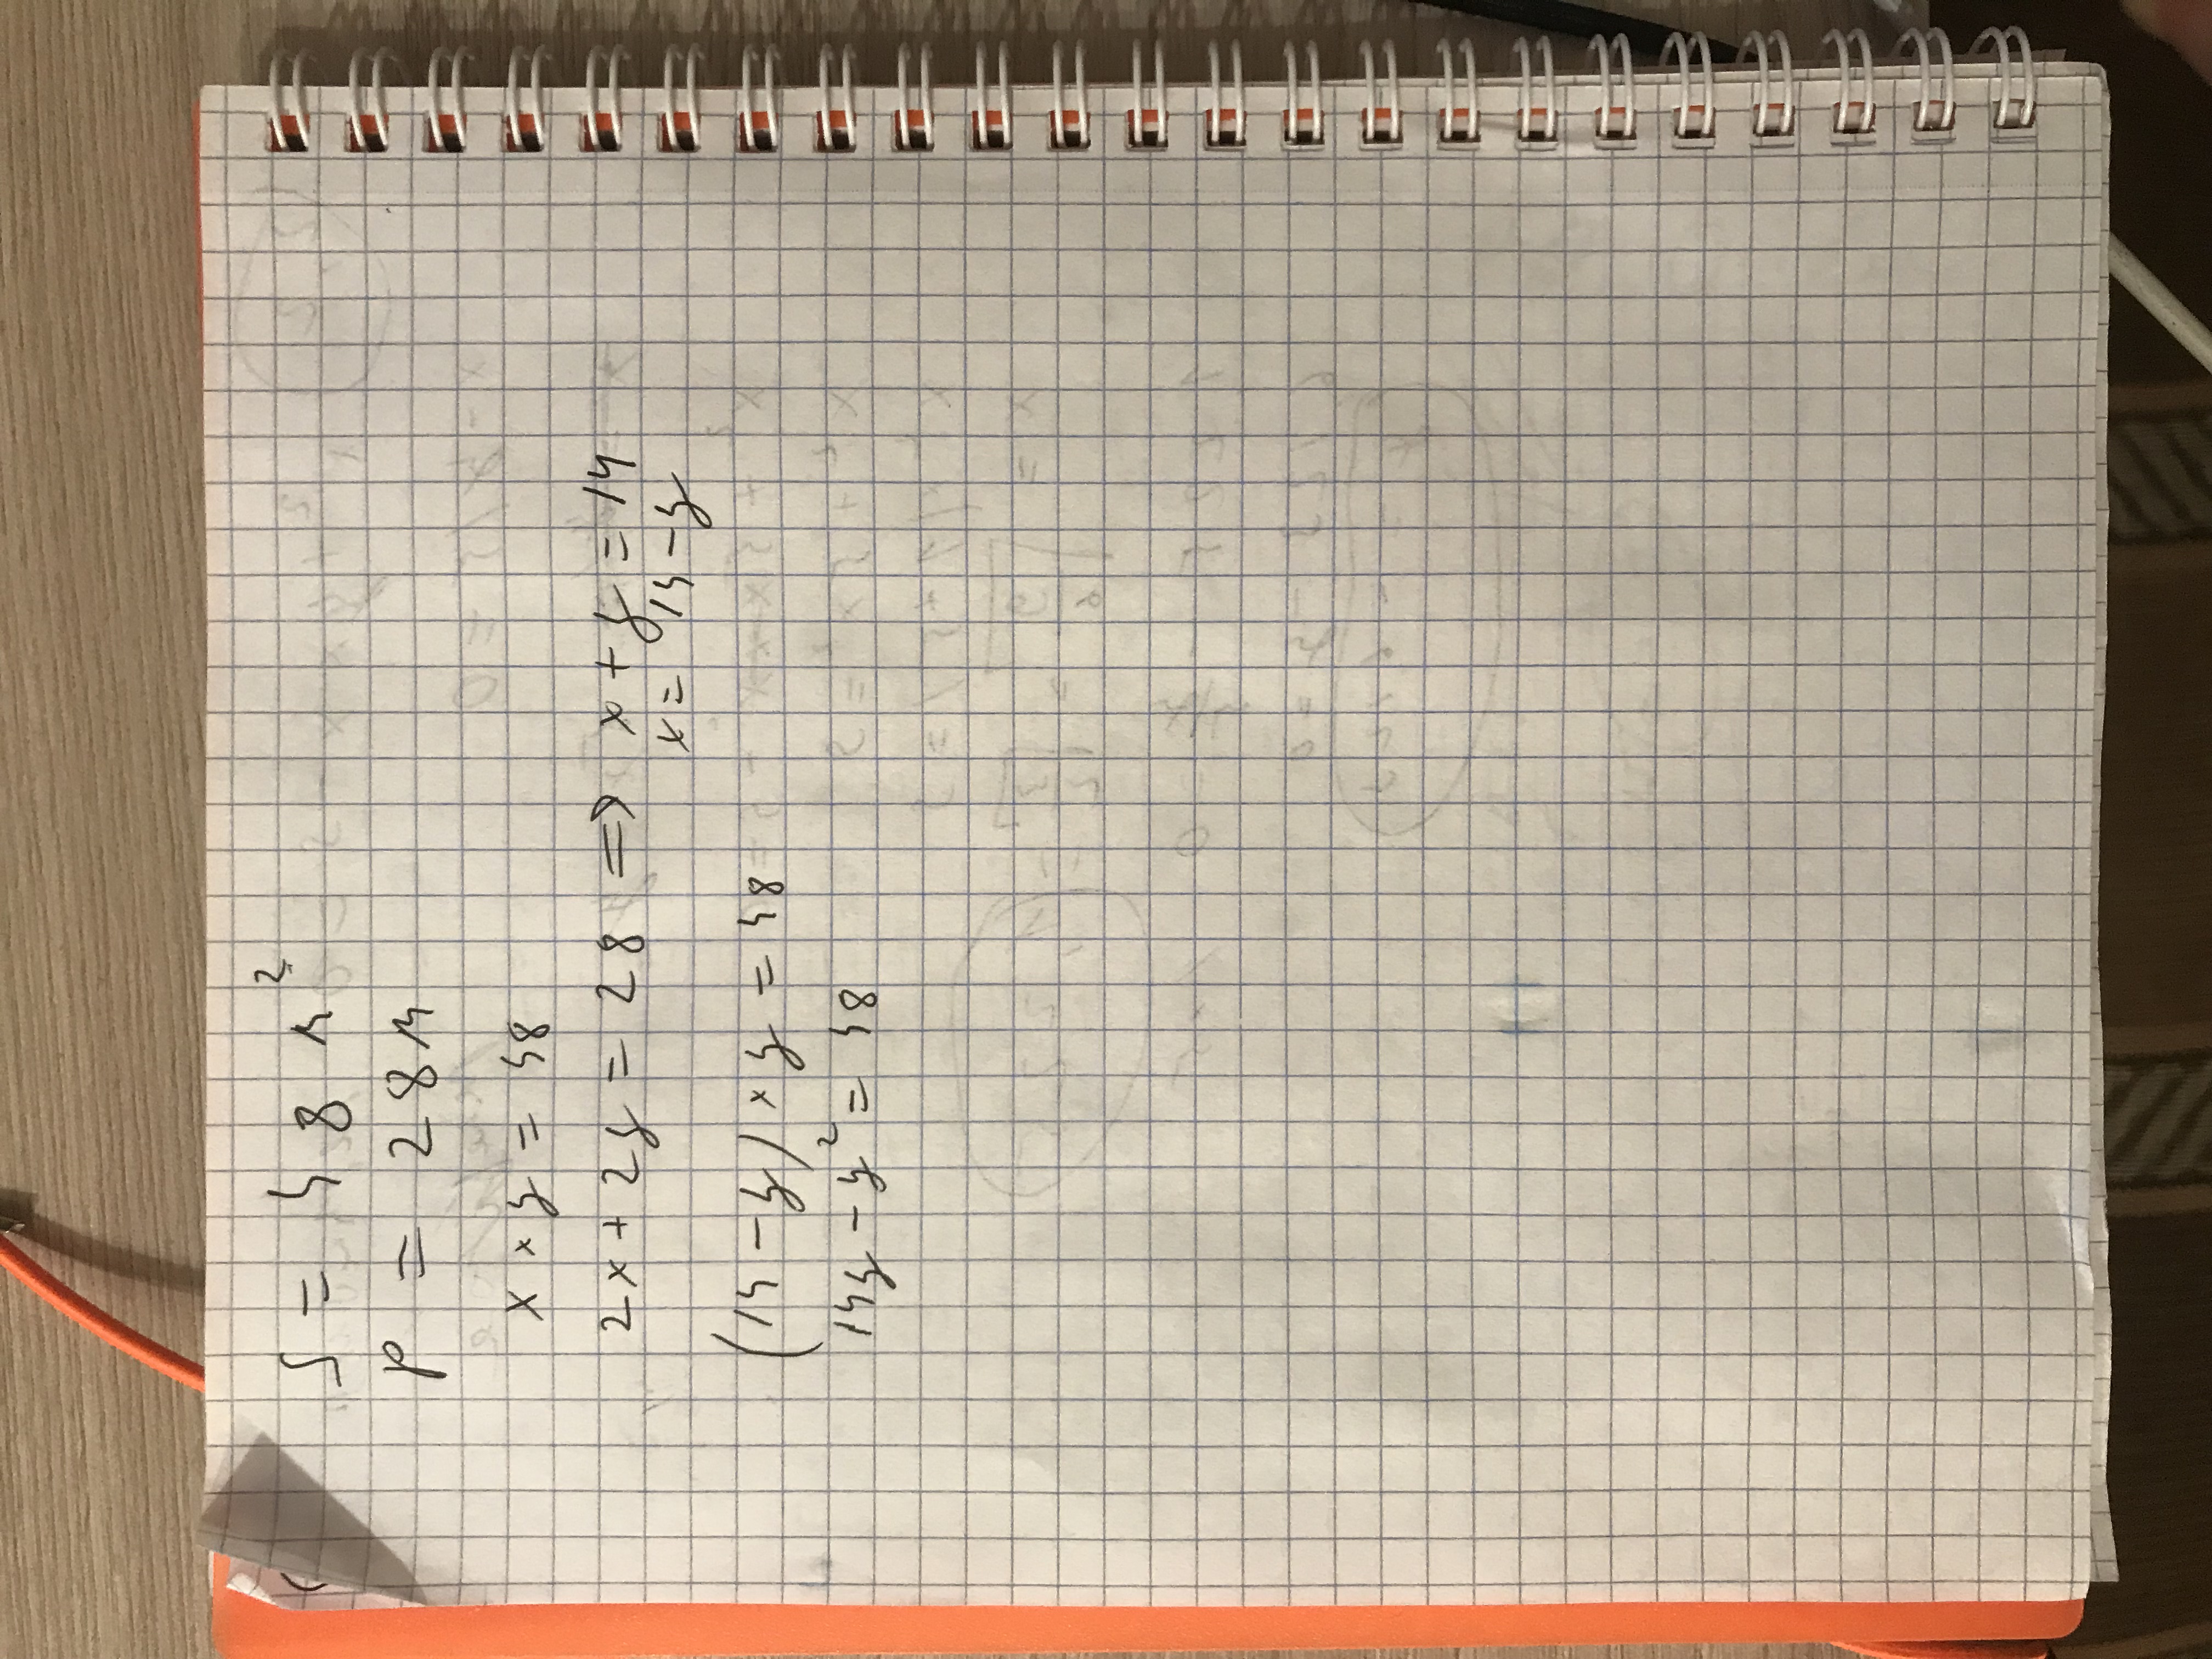 S = 48 м²
P = 28 м
x × y = 48
2x + 2y = 28 => x + y = 14
x = 14 - y
(14 - y) × y = 48
14y - y² = 48